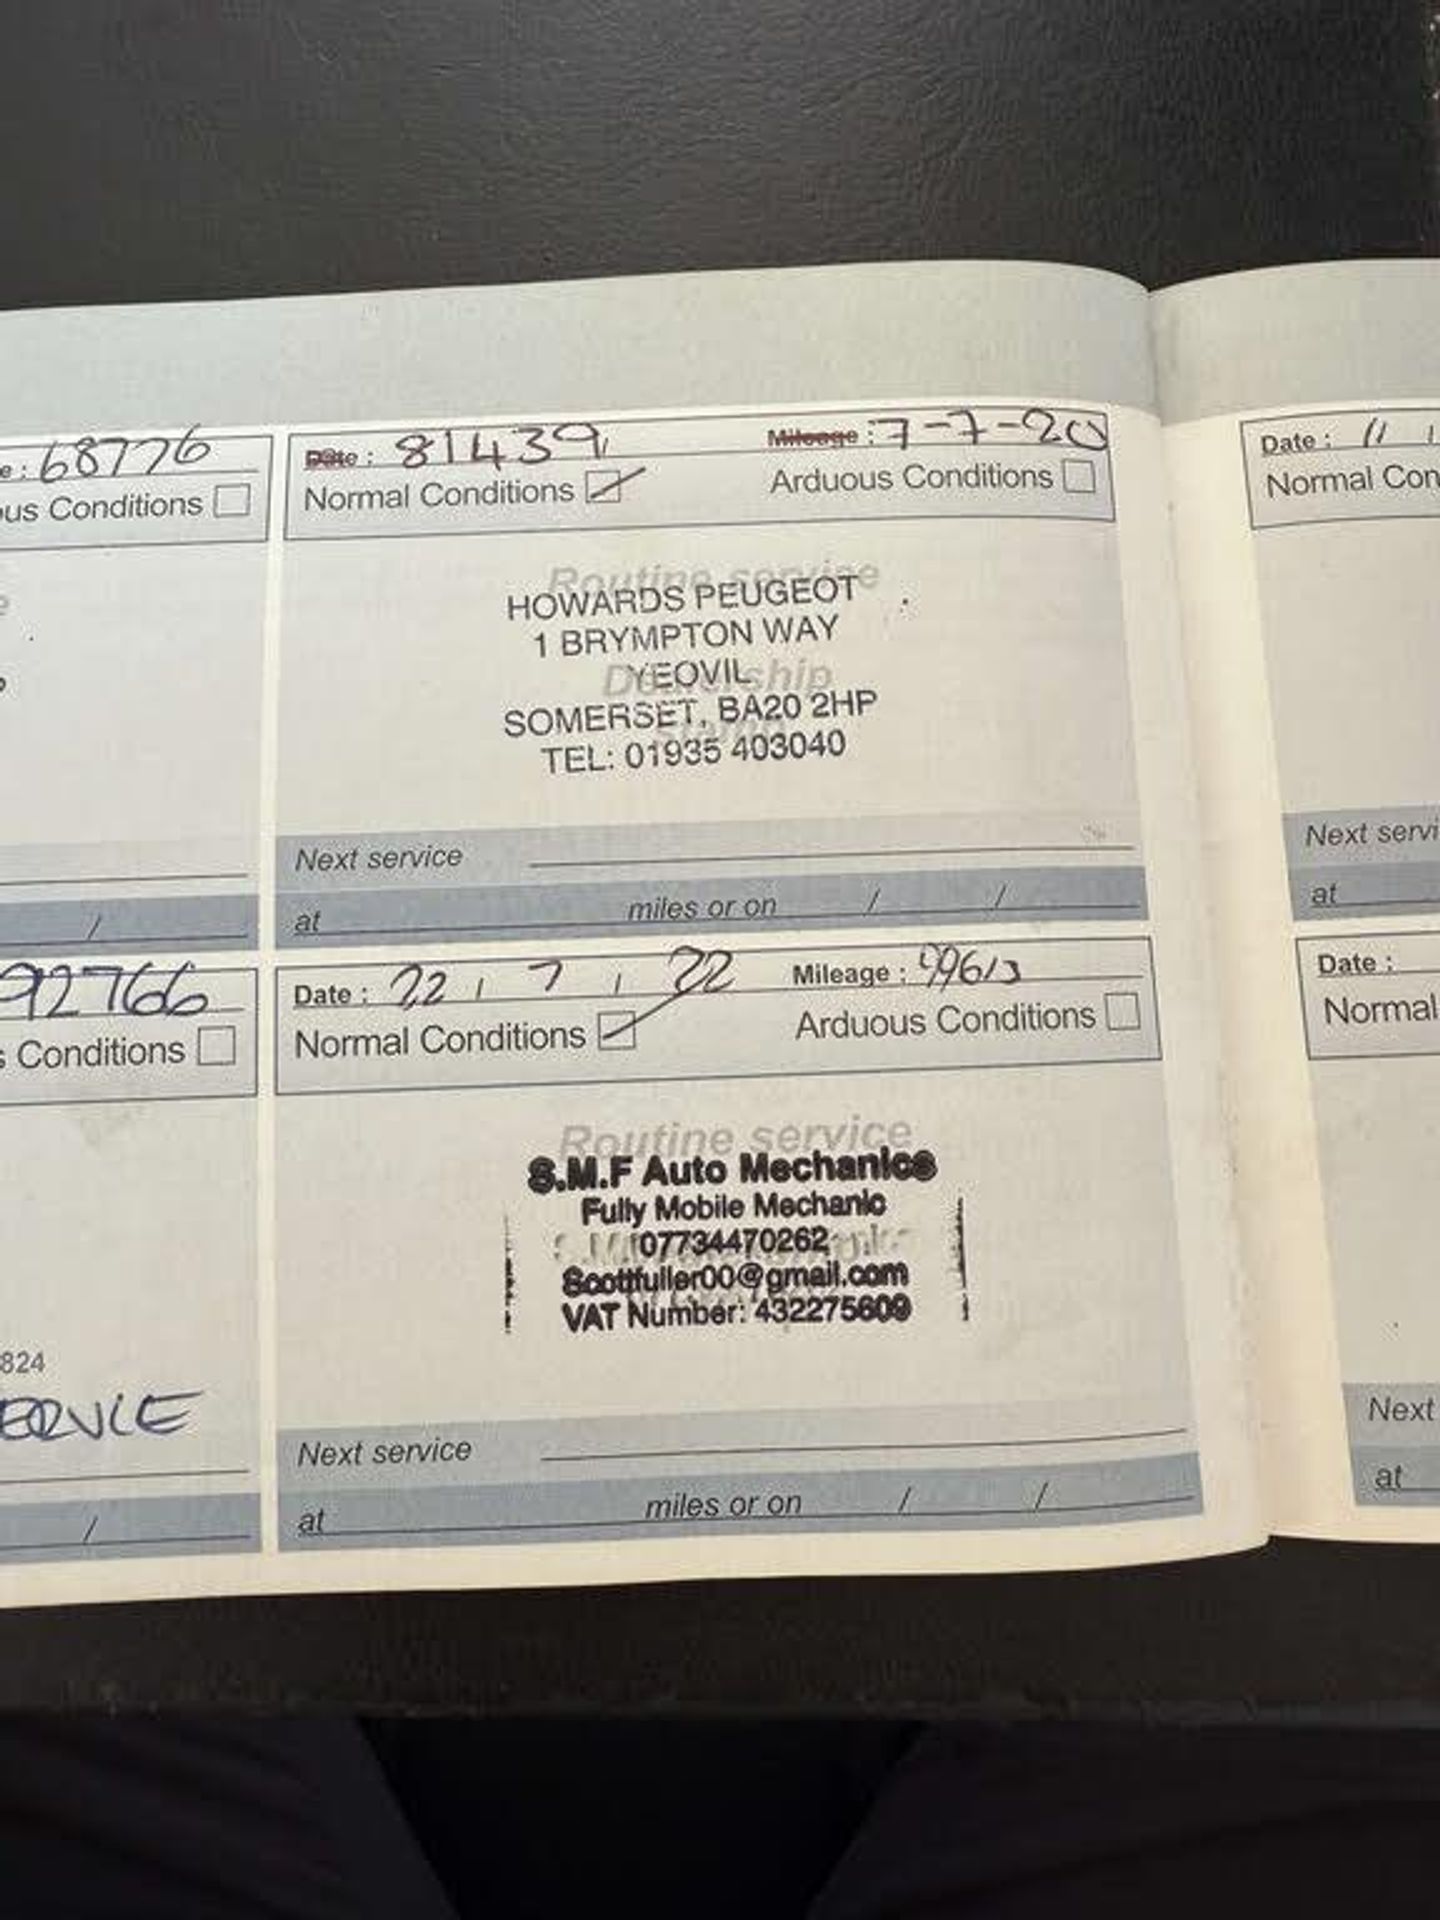 e : 68776
ous Conditions
Date : 81439 Mileage : 7-7-20
Normal Conditions Arduous Conditions
Routine service
HOWARDS PEUGEOT
1 BRYMPTON WAY
YEOVIL
Dealership
SOMERSET, BA20 2HP
stamp
TEL: 01935 403040
Next service
/
at miles or on / /
92766
s Conditions
Date : 22 / 7 / 22 Mileage : 99613
Normal Conditions Arduous Conditions
Routine service
S.M.F Auto Mechanics
Fully Mobile Mechanic
07734470262
Scottfuller00@gmail.com
VAT Number: 432275609
824
ERVICE
Next service
/
at miles or on / /
Date : 11 /
Normal Con
Next servi
at
Date :
Normal
Next
at